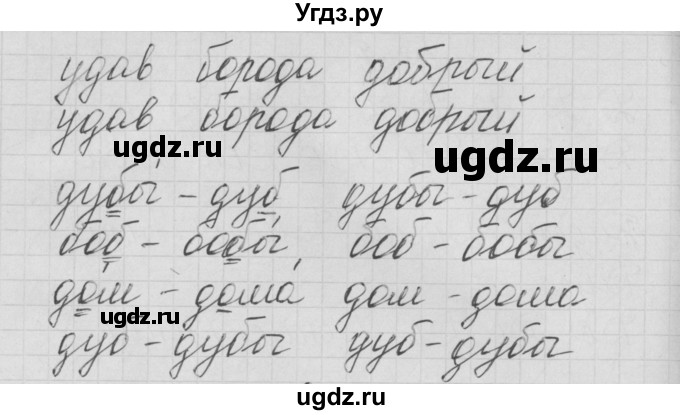 Угдз.ру
удав борода добрый
удав борода добрый
ugdz.ru ugdz.ru
дубы - дуб дубы - дуб
боб - бобы, боб - бобы
дом - дома дом - дома
ugdz.ru ugdz.ru
дуб - дубы дуб - дубы
ugdz.ru ugdz.ru